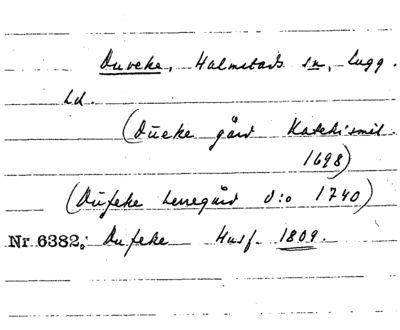 Duveke, Halmstads sn, Lugg.
hd.
(Dueke gård Katekismil.
1698)
(Dufeke Lenegård d:o 1740)
Nr 6382; Dufeke Husf. 1809.